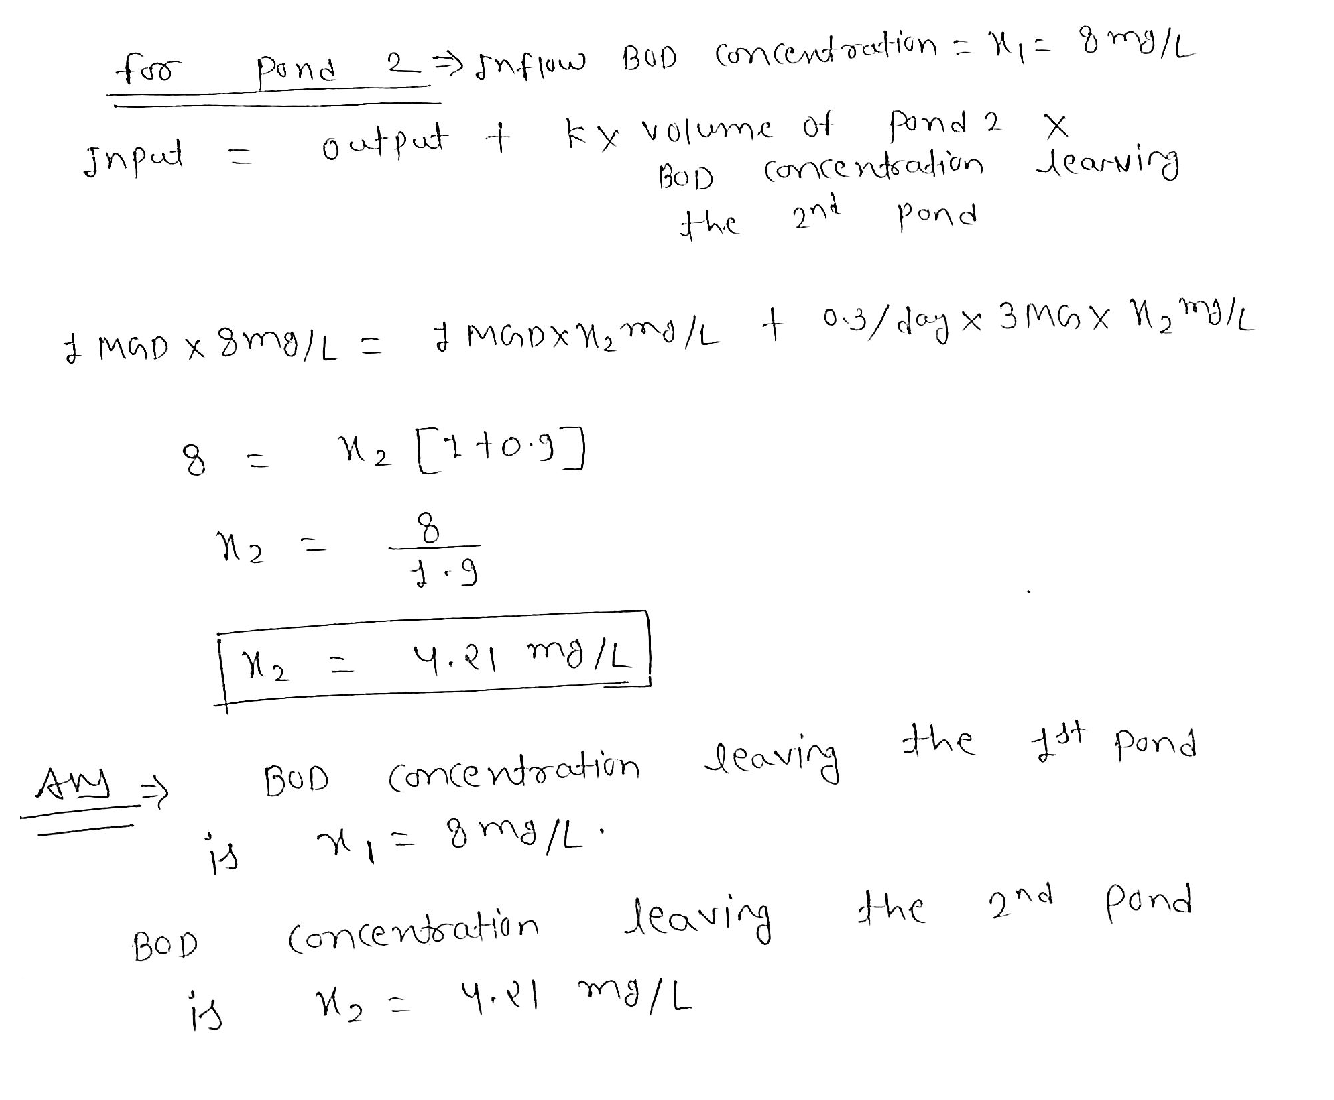 for pond 2 ⇒ Inflow BOD concentration = x₁ = 8 mg/L
Input = output + k x volume of pond 2 x
BOD concentration learving
the 2nd pond
1 MGD x 8mg/L = 1 MGD x x₂ mg/L + 0.3/day x 3 MG x x₂ mg/L
8 = x₂ [1+0.9]
x₂ = 8/1.9
x₂ = 4.21 mg/L
Ans ⇒ BOD concentration leaving the 1st pond
is x₁ = 8 mg/L.
BOD concentration leaving the 2nd pond
is x₂ = 4.21 mg/L